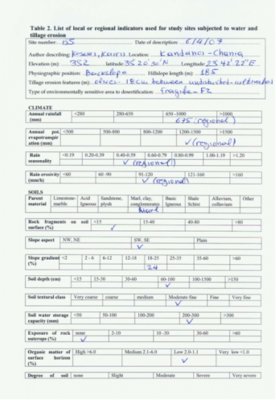 Table 2. List of local or regional indicators used for study sites subjected to water and
tillage erosion
Site number: Date of description: 6/4/09
Author describing: Kosmas, Kairis Location: Kandanos-Chania
Elevation (m) 352 latitude: 35 20' 30" N Longitude: 23 42' 22" E
Physiographic position: Backslope Hillslope length (m) 185
Tillage erosion features (m)
Type of environmental sensitive area to desertification: Fragile-F2
CLIMATE
Annual rainfall (mm) <280 280-650 650-1000 >1000
675 (regional)
Annual pot. evapotranspiration (mm) <500 500-800 800-1200 1200-1500 >1500
✓ (regional)
Rain seasonality <0.19 0.20-0.39 0.40-0.59 0.60-0.79 0.80-0.99 1.00-1.19 >1.20
✓ (regional)
Rain erosivity (mm/h) <60 60-90 91-120 121-160 >160
✓ (regional)
SOILS
Parent material Limestone-marble Acid Igneous Sandstone, flysch Marl, clay, conglomerates Basic Igneous Shale Schist Alluvium, colluvium Other
Marl
Rock fragments on soil surface (%) <15 15-40 40-80 >80
✓
Slope aspect NW, NE SW, SE Plain
✓
Slope gradient (%) <2 2-6 6-12 12-18 18-25 25-35 35-60 >60
24
Soil depth (cm) <15 15-30 30-60 60-100 100-150 >150
✓
Soil textural class Very coarse coarse medium Moderate fine Fine Very fine
✓
Soil water storage capacity (mm) <50 50-100 100-200 200-300 >300
✓
Exposure of rock outcrops (%) none 2-10 10-30 30-60 >60
✓
Organic matter of surface horizon (%) High >6.0 Medium 2.1-6.0 Low 2.0-1.1 Very low <1.0
✓
Degree of soil none Slight Moderate Severe Very severe